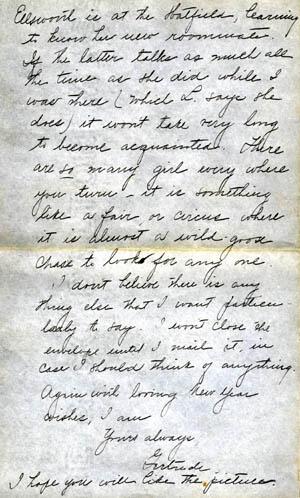 Ellsworth is at the Hatfield, learning
to know her new roommate.
If the latter talks as much all
the time as she did while I
was there (which L. says she
does) it wont take very long
to become acquainted. There
are so many girl every where
you turn - it is something
like a fair or circus where
it is almost a wild-goose
chase to look for any one
I don't believe there is any
thing else that I want particu-
larly to say. I won't close the
envelope until I mail it, in
case I should think of anything.
Again with loving New Year
wishes, I am
Yours always
Gertrude
I hope you will like the picture.